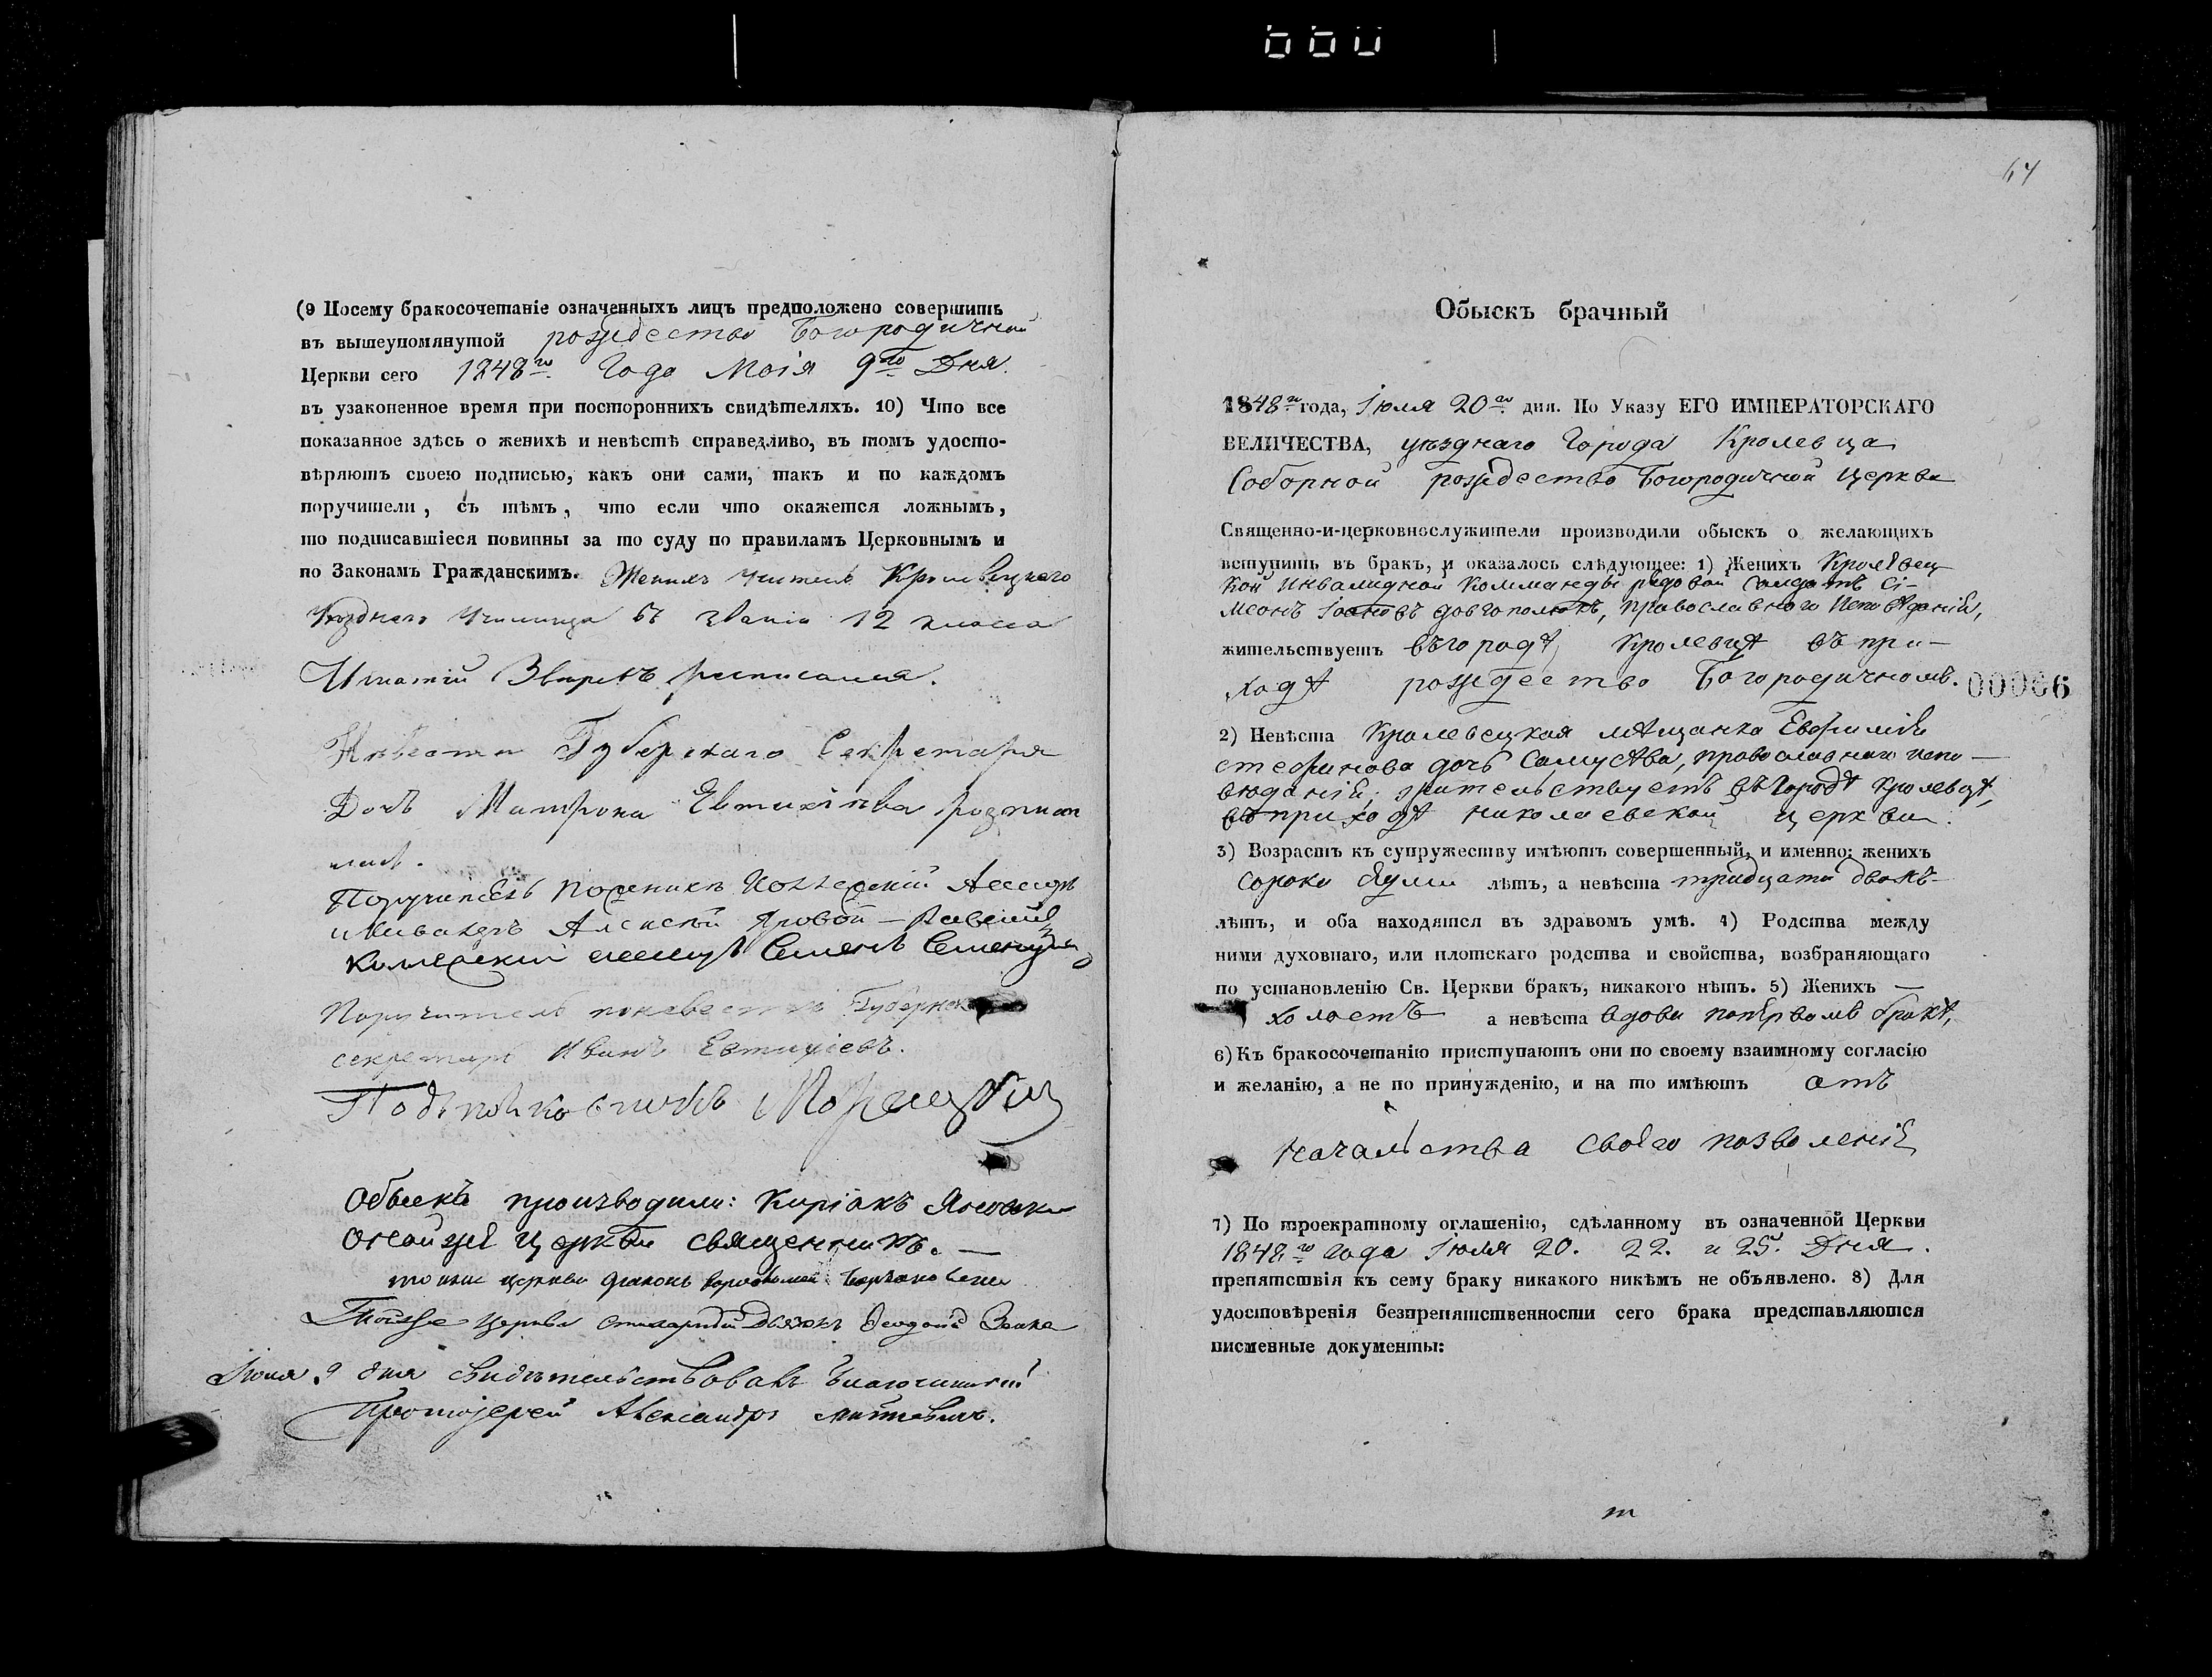 (9 Посему бракосочетаніе означенныхъ лицъ предположено совершить
въ вышеупомянутой рождество Богородичной
Церкви сего 1848го Года Маія 9го Дня.
въ узаконенное время при постороннихъ свидѣтеляхъ. 10) Что все
показанное здѣсь о женихѣ и невѣстѣ справедливо, въ томъ удосто-
вѣряютъ своею подписью, какъ они сами, такъ и по каждомъ
поручители, съ тѣмъ, что если что окажется ложнымъ,
то подписавшіеся повинны за то суду по правиламъ Церковнымъ и
по Законамъ Гражданскимъ. Женихъ Учитель Кролевецкаго
Уѣзднаго Училища въ званіи 12 класса
Игнатій росписался.
Невѣста Губерскаго Секретаря
Дочь Матрона Евтихіева
Поручитель по женихѣ
Алексѣй Яровой
Семенъ
Поручитель по невѣстѣ Губернск
секретарь Иванъ Евтихіевъ.
Подполковникъ
Обыскъ производили: Киріакъ
Оной же Церкви священникъ. —
той же церкви діаконъ
Тойже Церкви Дьячокъ
9 дня свидѣтельствовалъ благочинный
Протоіерей Александръ
64
Обыскъ брачный
1848го года, Іюля 20го дня. По Указу ЕГО ИМПЕРАТОРСКАГО
ВЕЛИЧЕСТВА, уѣзднаго Города Кролевца
Соборной рождество Богородичной Церкви
Священно-и-церковнослужители производили обыскъ о желающихъ
вступить въ бракъ, и оказалось слѣдующее: 1) Женихъ Кролевец
кой Инвалидной Комманды рядовой Солдатъ Сі-
меонъ Іоановъ довгополюкъ, православнаго Исповѣданія,
жительствуетъ въ городѣ Кролевцѣ въ при-
ходѣ рождество Богородичномъ.
00066
2) Невѣста Кролевецкая мѣщанка Евфимія
стефанова дочь Самусѣва, православнаго испо-
вѣданія; жительствуетъ въ Городѣ Кролевцѣ,
въ приходѣ николаевской церкви.
3) Возрастъ къ супружеству имѣютъ совершенный, и именно: женихъ
сорока лѣтъ, а невѣста тридцати двохъ-
лѣтъ, и оба находятся въ здравомъ умѣ. 4) Родства между
ними духовнаго, или плотскаго родства и свойства, возбраняющаго
по установленію Св. Церкви бракъ, никакого нѣтъ. 5) Женихъ —
холостъ а невѣста вдова поперьвомъ бракѣ,
6) Къ бракосочетанію приступаютъ они по своему взаимному согласію
и желанію, а не по принужденію, и на то имѣютъ отъ
начальства своего позволеніе
7) По троекратному оглашенію, сдѣланному въ означенной Церкви
1848го Года Іюля 20. 22. и 25. Дня.
препятствія къ сему браку никакого никѣмъ не объявлено. 8) Для
удостовѣренія безпрепятственности сего брака представляются
писменные документы:
т